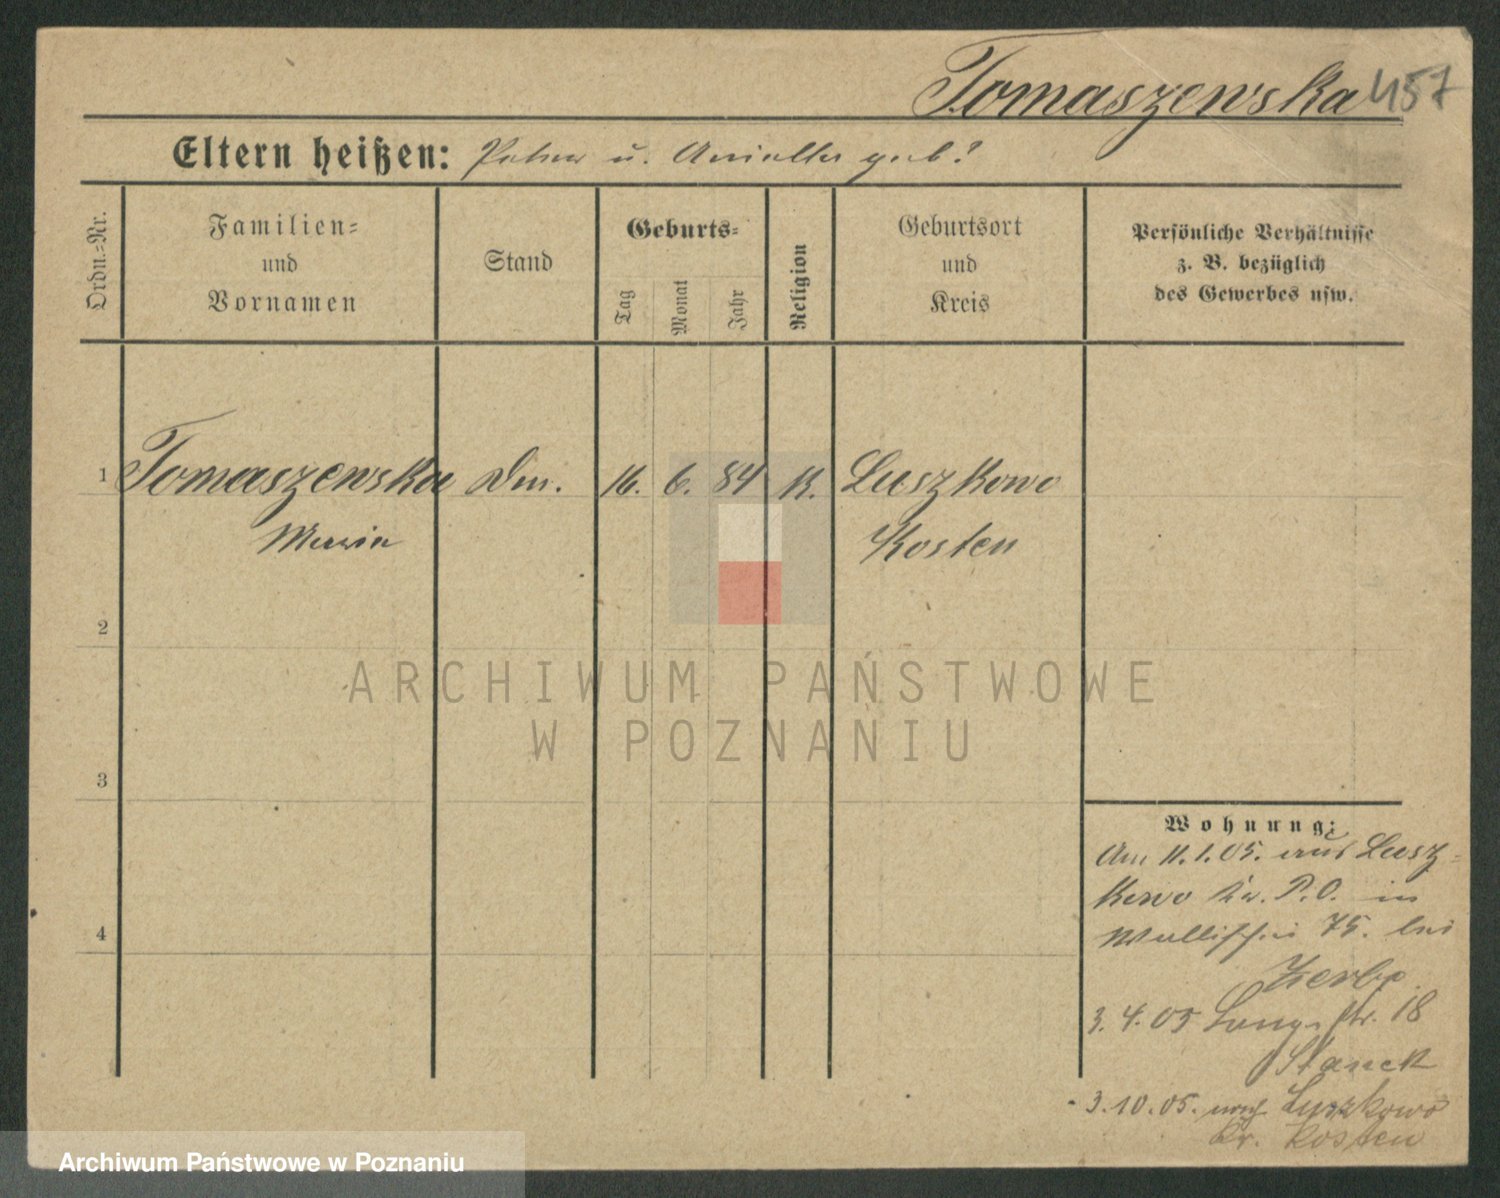 Tomaszewska 457
Eltern heißen: Peter u. Aniella geb?
Ordn.=Nr.
Familien=
und
Vornamen
Stand
Geburts=
Tag
Monat
Jahr
Religion
Geburtsort
und
Kreis
Persönliche Verhältnisse
z. B. bezüglich
des Gewerbes usw.
1 Tomaszewska Dm. 16. 6. 84 K. Luszkowo
Maria Kosten
2
3
4
ARCHIWUM PAŃSTWOWE
W POZNANIU
Wohnung:
Am 11.1.05. aus Lusz=
kowo Kr. P.O. in
Wallischei 75. bei
3.4.05 Lange str. 18
Stanek
3.10.05. nach Luszkowo
Kr. Kosten
Archiwum Państwowe w Poznaniu